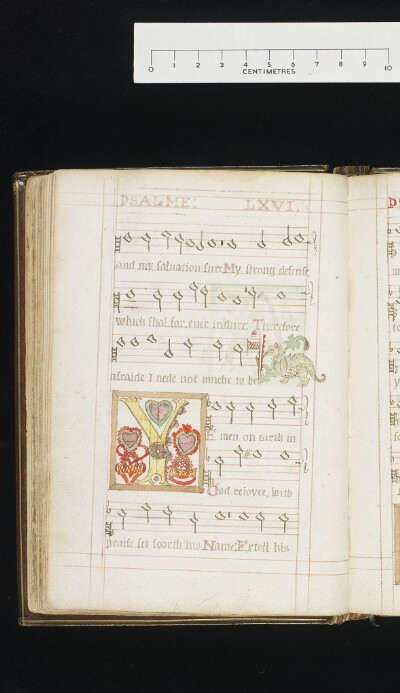 0 1 2 3 4 5 6 7 8 9 10
CENTIMETRES
PSALME: LXVI.
and my saluation sure My strong defense
which shal for euer indure: Therfore
afraide I nede not muche to be
Y
E men on earth in
God reioyce, with
praise set foorth his Name: Extoll his